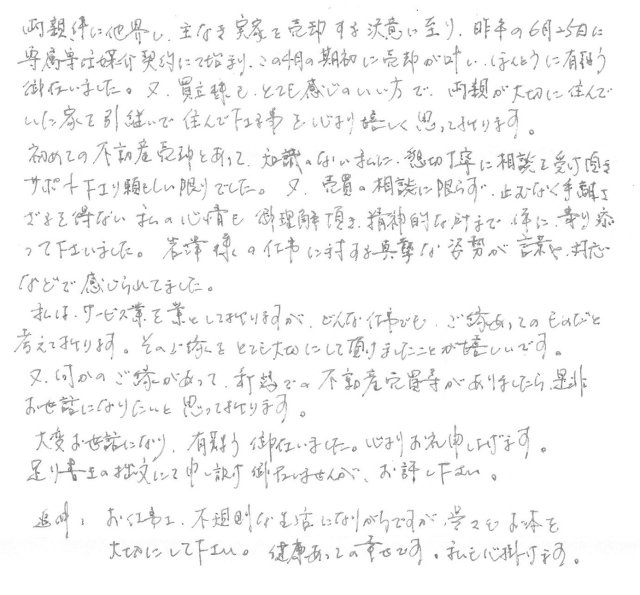 両親供に他界し、主なき実家を売却する決意に至り、昨年の6月25日に
専属専任媒介契約にて始まり、この4月の期初に売却が叶い、ほんとうに有難う
御在いました。又、買主様も、とても感じのいい方で、両親が大切に住んで
いた家を引継いで住んで下さる事を、心より嬉しく思っております。
初めての不動産売却とあって、知識のない私に、懇切丁寧に相談を受け頂き
サポート下さり頼もしい限りでした。又、売買の相談に限らず、止むなく手離さ
ざるを得ない私の心情も御理解頂き、精神的な所まで供に、寄り添
って下さいました。岩澤様の仕事に対する真摯な姿勢が言葉や、対応
などで感じられてました。
私は、サービス業を業としておりますが、どんな仕事でも、ご縁あってのものだと
考えております。そのご縁をとても大切にして頂けましたことが嬉しいです。
又、何かのご縁があって、新潟での不動産売買等がありましたら、是非
お世話になりたいと思っております。
大変お世話になり、有難う御在いました。心よりお礼申し上げます。
走り書きの拙文にて申し訳御在いませんが、お許し下さい。
追伸：お仕事上、不規則な生活になりがちですが、呉々もお体を
大切にして下さい。健康あっての幸せです。私も心掛けます。